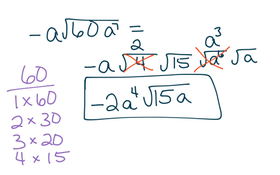 -a√60a⁷ =
2 a³
-a√4 √15 √a⁶ √a
-2a⁴√15a
60
1 × 60
2 × 30
3 × 20
4 × 15